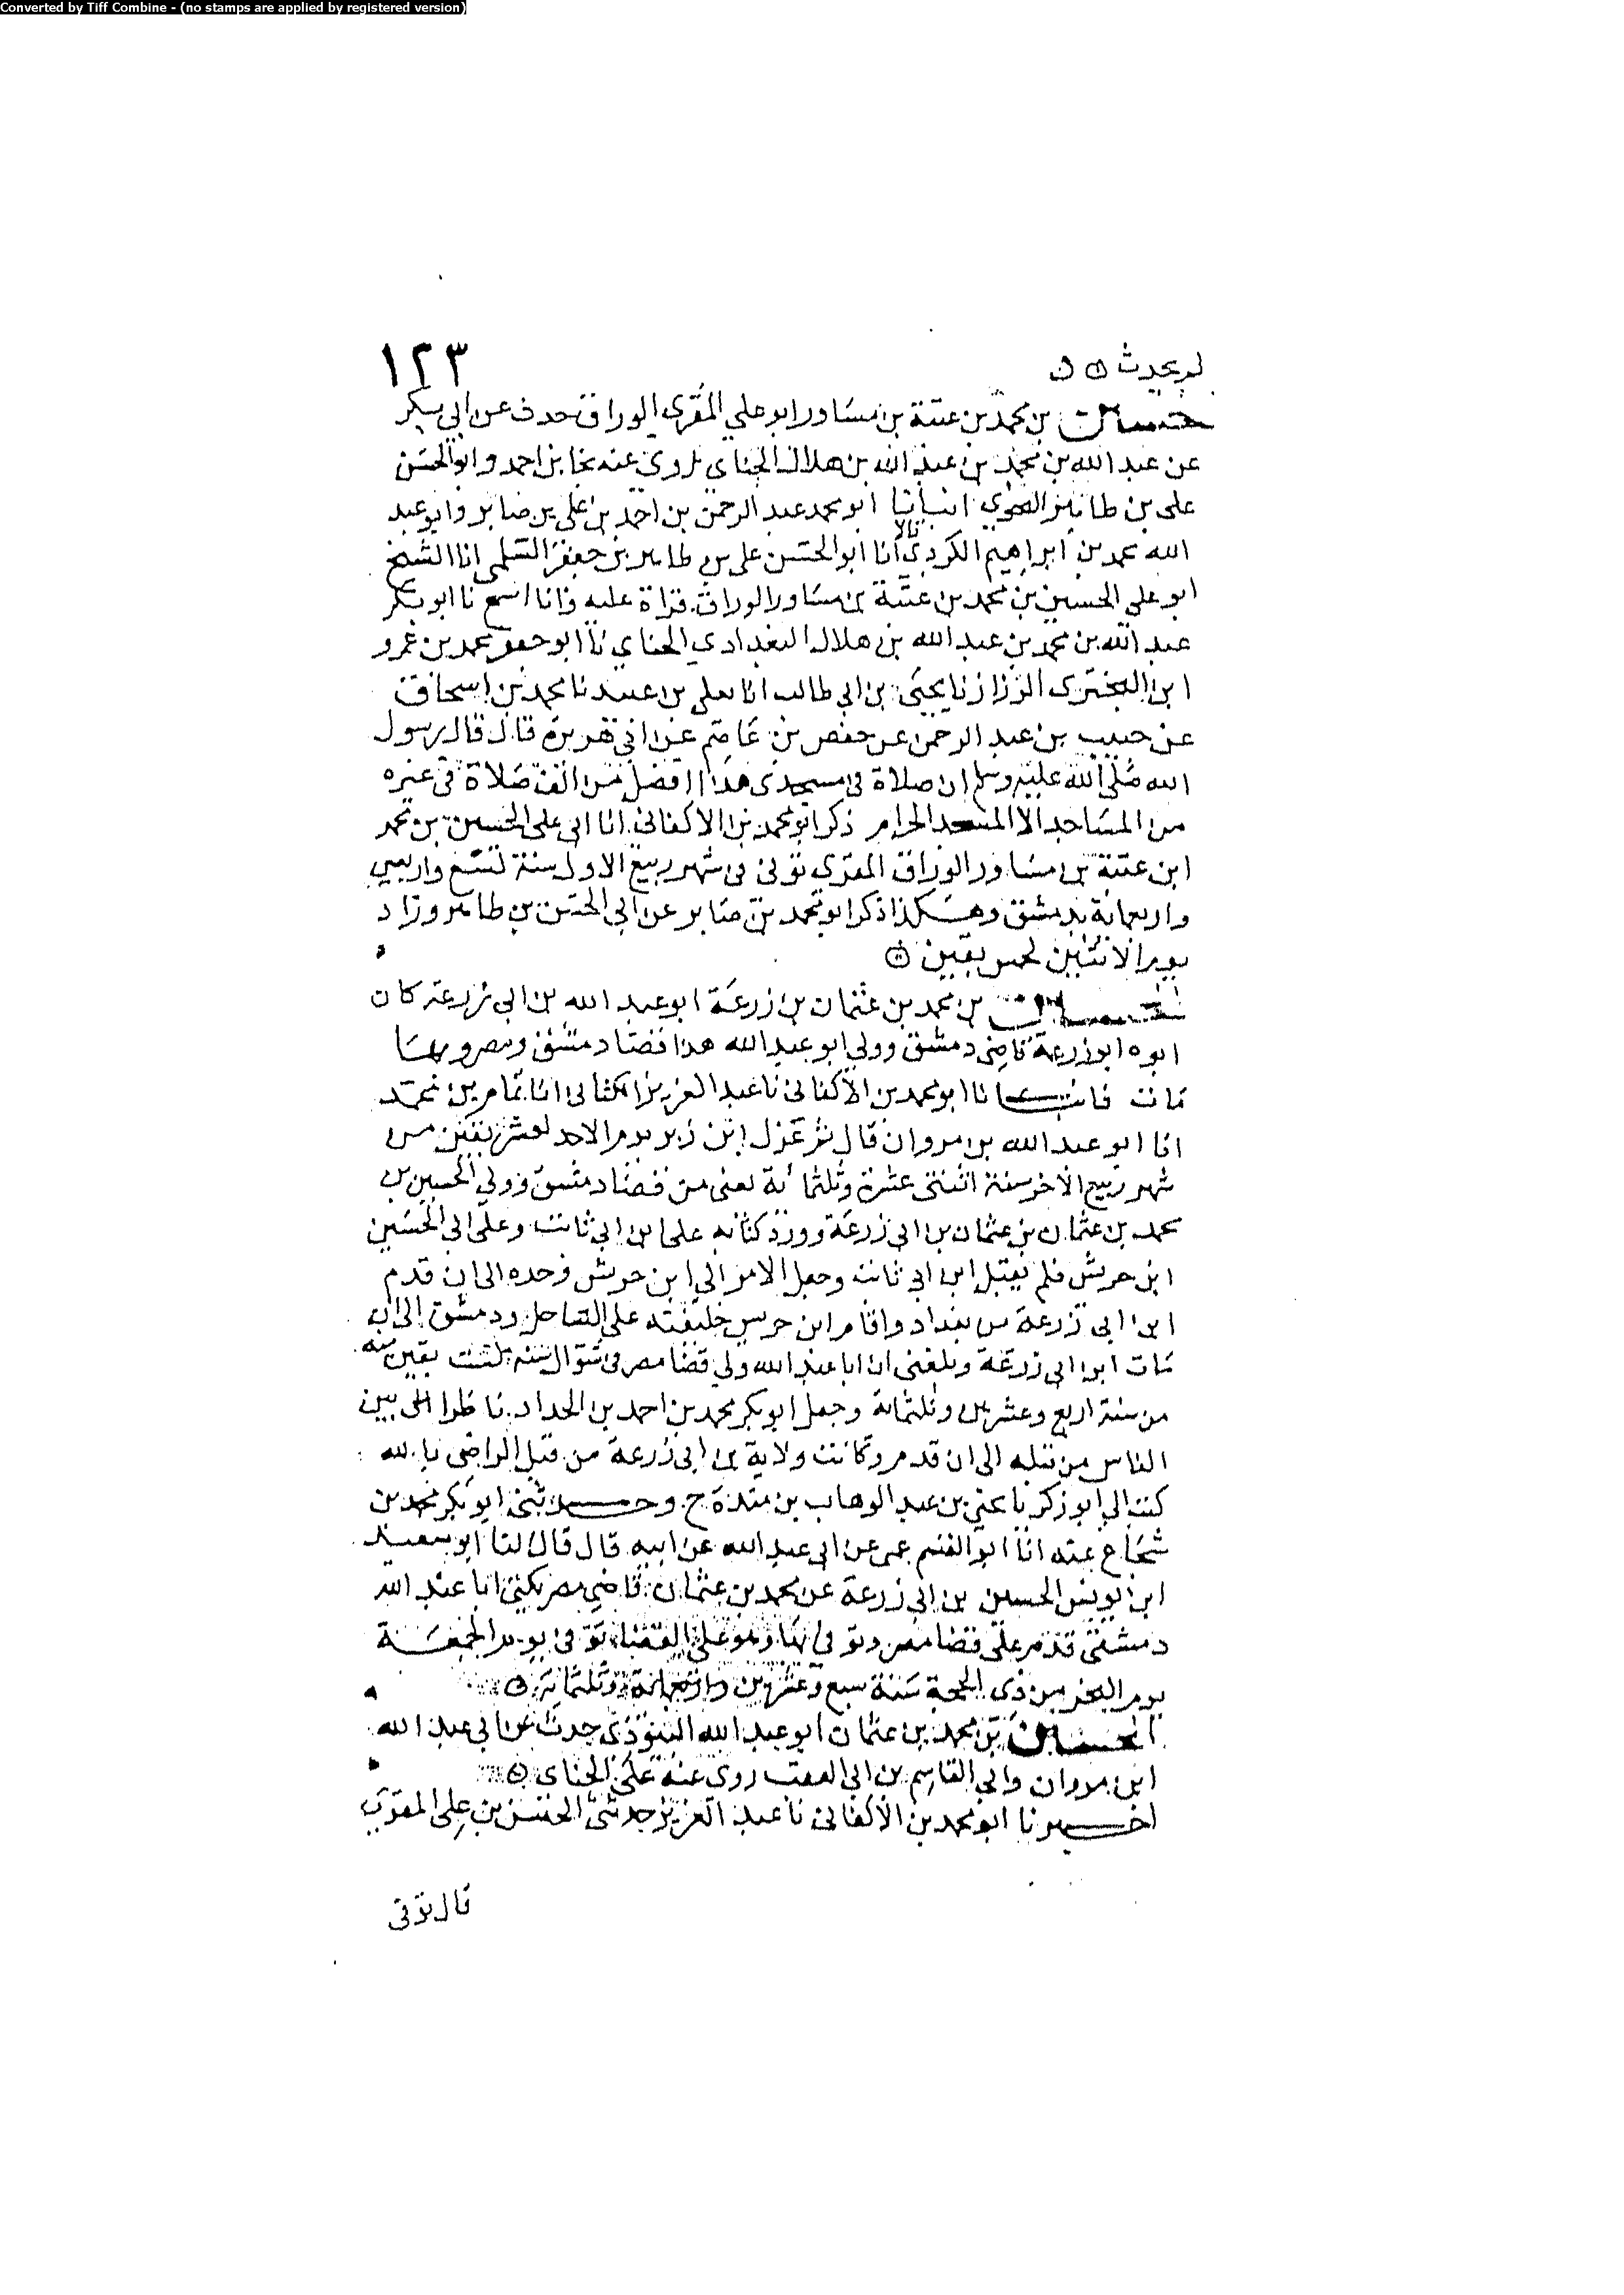 Converted by Tiff Combine - (no stamps are applied by registered version)
١٢٣
لم يحدث
حسين بن محمد بن عتبة بن مساور ابو علي المقري الوراق حدث عن ابي بكر
عن عبد الله بن محمد بن عبد الله بن هلال الحناي روى عنه نجا بن احمد وابو الحسن
علي بن طاهر النحوي انبانا ابو محمد عبد الرحمن بن احمد بن علي بن صابر وابو عبد
الله محمد بن ابراهيم الكردي قالا انا ابو الحسن علي بن طاهر بن جعفر السلمي انا الشيخ
ابو علي الحسين بن محمد بن عتبة بن مساور الوراق قراة عليه وانا اسمع نا ابو بكر
عبد الله بن محمد بن عبد الله بن هلال البغدادي الحناي نا ابو جعفر محمد بن عمرو
ابن البختري الرزاز نا يحيى بن ابي طالب انا يعلى بن عبيد نا محمد بن اسحاق
عن حبيب بن عبد الرحمن عن حفص بن عاصم عن ابي هريرة قال قال رسول
الله صلى الله عليه وسلم ان صلاة في مسجدي هذا افضل من الف صلاة في غيره
من المساجد الا المسجد الحرام ذكر ابو محمد بن الاكفاني انا ابي علي الحسين بن محمد
ابن عتبة بن مساور الوراق المقري توفي في شهر ربيع الاول سنة تسع واربعين
واربعماية بدمشق وهكذا ذكر ابو محمد بن صابر عن ابي الحسن بن طاهر وزاد
يوم الاثنين لخمس بقين
الحسين بن محمد بن عثمان بن زرعة ابو عبد الله بن ابي زرعة كان
ابوه ابو زرعة قاضي دمشق وولي ابو عبد الله هذا قضا دمشق ومصر وبها
مات انا ابو محمد بن الاكفاني نا عبد العزيز الكتاني انا تمام بن محمد
انا ابو عبد الله بن مروان قال ثم عزل ابن زبر يوم الاحد لعشر بقين من
شهر ربيع الاخر سنة اثنتي عشرة وثلثماية يعني من قضا دمشق وولي الحسين بن
محمد بن عثمان بن عثمان بن ابي زرعة وورد كتابه على ابن ابي ثابت وعلى ابي الحسين
ابن حريش فلم يقبل ابن ابي ثابت وجعل الامر الى ابن حريش وحده الى ان قدم
ابن ابي زرعة من بغداد واقام ابن حريس خليفته على الساحل ودمشق الى ان
مات ابن ابي زرعة وبلغني ان ابا عبد الله ولي قضا مصر في شوال سنه بلثت بقين منه
من سنة اربع وعشرين وثلثماية وجعل ابو بكر محمد بن احمد بن الحداد ناظرا بين
الناس من قبله الى ان قدم وكانت ولاية بن ابي زرعة من قبل الراضي بالله
كتب الي ابو زكريا يحيى بن عبد الوهاب بن مندة ح وحدثني ابو بكر محمد بن
شجاع عنه انا ابو القسم عمي عن ابي عبد الله عن ابيه قال قال لنا ابو سعيد
ابن يونس الحسين بن ابي زرعة عن محمد بن عثمان قاضي مصر يكنى ابا عبد الله
دمشقي قدم على قضا مصر وتوفي بها وهو على القضاء توفي يوم الجمعة
يوم النحر من ذي الحجة سنة سبع وعشرين وثلثماية
الحسين بن محمد بن عثمان ابو عبد الله حدث عن ابي عبد الله
ابن مروان وابي القاسم بن ابي العقب روى عنه علي الحناي
اخبرنا ابو محمد بن الاكفاني نا عبد العزيز حدثني الحسن بن علي المقري
قال توفي